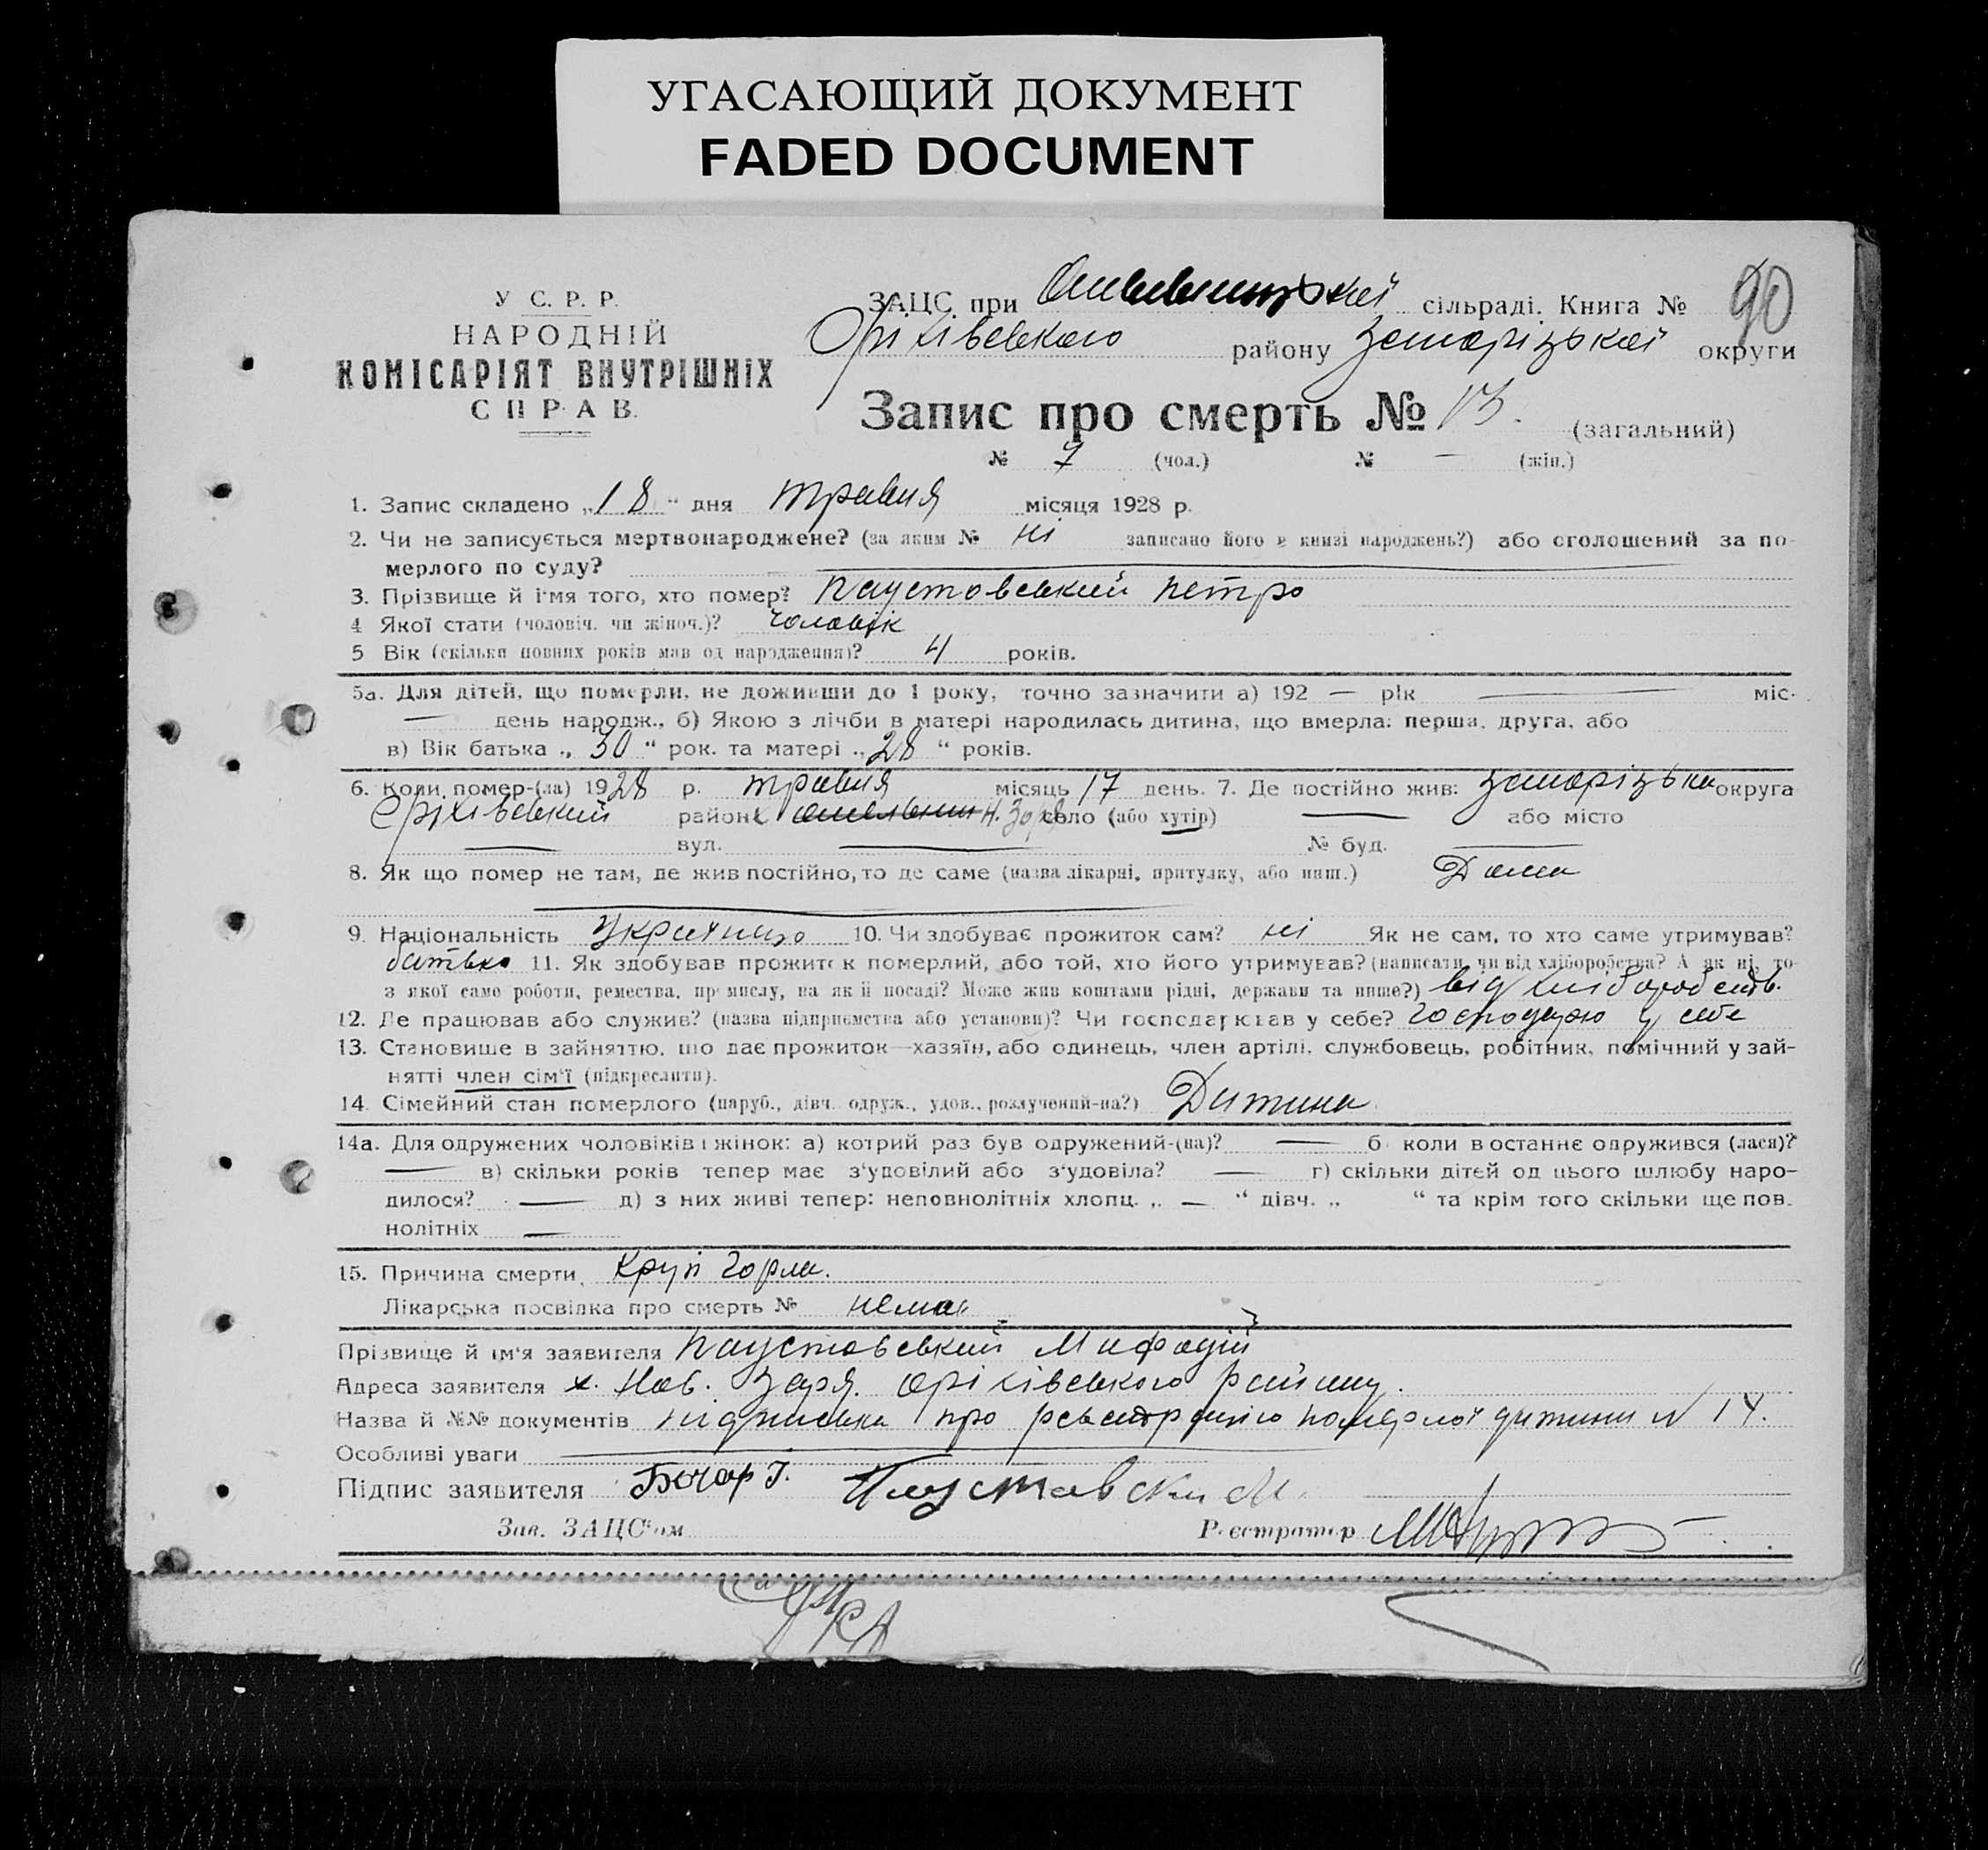 УГАСАЮЩИЙ ДОКУМЕНТ
FADED DOCUMENT
У С. Р. Р.
НАРОДНІЙ
КОМІСАРІЯТ ВНУТРІШНІХ
СПРАВ.
ЗАЦС при сільраді. Книга № 90
Оріхівського району Запорізької округи
Запис про смерть № 13. (загальний)
№ 7 (чол.) № — (жін.)
1. Запис складено „18“ дня травня місяця 1928 р.
2. Чи не записується мертвонароджене? (за яким № ні записано його в книзі народжень?) або оголошений за по-
мерлого по суду?
3. Прізвище й ім'я того, хто помер? Паустовський Петро
4 Якої стати (чоловіч. чи жіноч.)? чоловік
5 Вік (скільки повних років мав од народження)? 4 років.
5а. Для дітей, що померли, не доживши до 1 року, точно зазначити а) 192 — рік — міс.
— день народж., б) Якою з лічби в матері народилась дитина, що вмерла: перша, друга, або
в) Вік батька „30“ рок. та матері „28“ років.
6. Коли помер-(ла) 1928 р. травня місяць 17 день. 7. Де постійно жив: Запорізька округа
Оріхівський район Н. Зоря село (або хутір) — або місто
— вул. — № буд. —
8. Як що помер не там, де жив постійно, то де саме (назва лікарні, притулку, або инш.) Дома
9. Національність Українець 10. Чи здобуває прожиток сам? ні Як не сам, то хто саме утримував?
батько 11. Як здобував прожиток померлий, або той, хто його утримував? (написати, чи від хліборобства? А як ні, то
з якої саме роботи, ремества, промислу, на якій посаді? Може жив коштами рідні, держави та инше?) від хліборобств.
12. Де працював або служив? (назва підприємства або установи)? Чи господарював у себе? Господарю у себе
13. Становище в зайняттю, що дає прожиток—хазяїн, або одинець, член артілі, службовець, робітник, помічний у зай-
нятті член сім'ї (підкреслити).
14. Сімейний стан померлого (паруб., дівч. одруж., удов., розлучений-на?) Дитина
14а. Для одружених чоловіків і жінок: а) котрий раз був одружений-(на)? — б коли в останнє одружився (лася)?
— в) скільки років тепер має з'удовілий або з'удовіла? — г) скільки дітей од цього шлюбу наро-
дилося? — д) з них живі тепер: неповнолітніх хлопц. „ — “ дівч. „ “ та крім того скільки ще пов.
нолітніх —
15. Причина смерти, Круп Горла.
Лікарська посвідка про смерть № немає
Прізвище й ім'я заявителя Паустовський Мифодій
Адреса заявителя х. Нов. Заря. Оріхівського Району.
Назва й №№ документів підписка про реєстрацію померлої дитини N 14.
Особливі уваги
Підпис заявителя Бочар І. Паустовски М.
Зав. ЗАЦС'ом Реєстратор